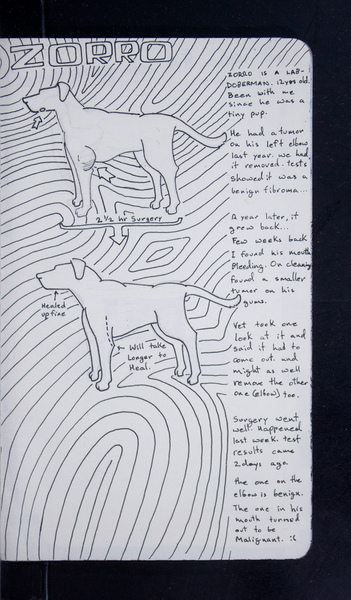 ZORRO
ZORRO IS A LAB-
DOBERMAN. 12yrs old.
Been with me
since he was a
tiny pup.
He had a tumor
on his left elbow
last year. we had
it removed. Tests
showed it was a
benign fibroma...
2 ½ hr Surgery
A year later, it
grew back...
Few weeks back
I found his mouth
Bleeding. On cleaning
found a smaller
tumor on his
gums.
Healed
up fine
Will take
Longer to
Heal.
Vet took one
look at it and
said it had to
come out. and
might as well
remove the other
one (elbow) too.
Surgery went
well. Happened
last week. test
results came
2 days ago.
the one on the
elbow is benign.
The one in his
mouth turned
out to be
Malignant. :(